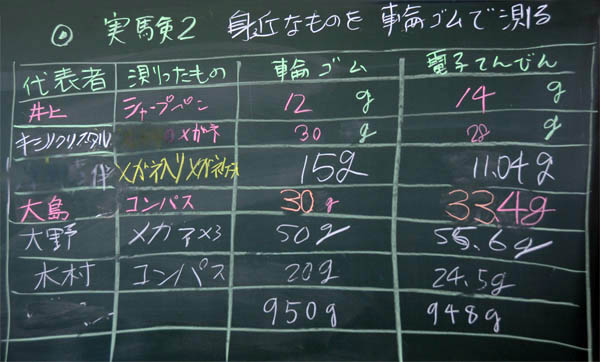 ◎ 実験2 身近なものを輪ゴムで測る
代表者 測ったもの 輪ゴム 電子てんびん
井上 シャープペン 12 g 14 g
メガネ 30 g 28 g
伴 メガネ入りメガネケース 15g 11.04g
大島 コンパス 30g 33.4g
大野 メガネ×3 50g 55.6g
木村 コンパス 20g 24.5g
950g 948g